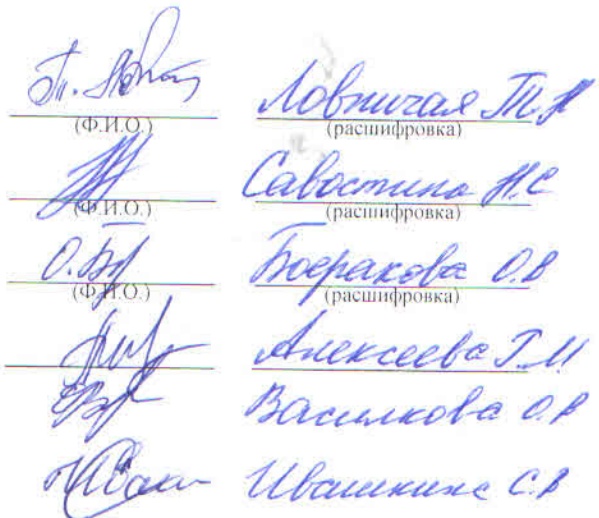 Ловничая Т.Н
(Ф.И.О.) (расшифровка)
Савостина Н.С
(Ф.И.О.) (расшифровка)
О.Бр Боеракова О.В
(Ф.И.О.) (расшифровка)
Алексеева Г.М
Василкова О.В
Ивашкина С.В